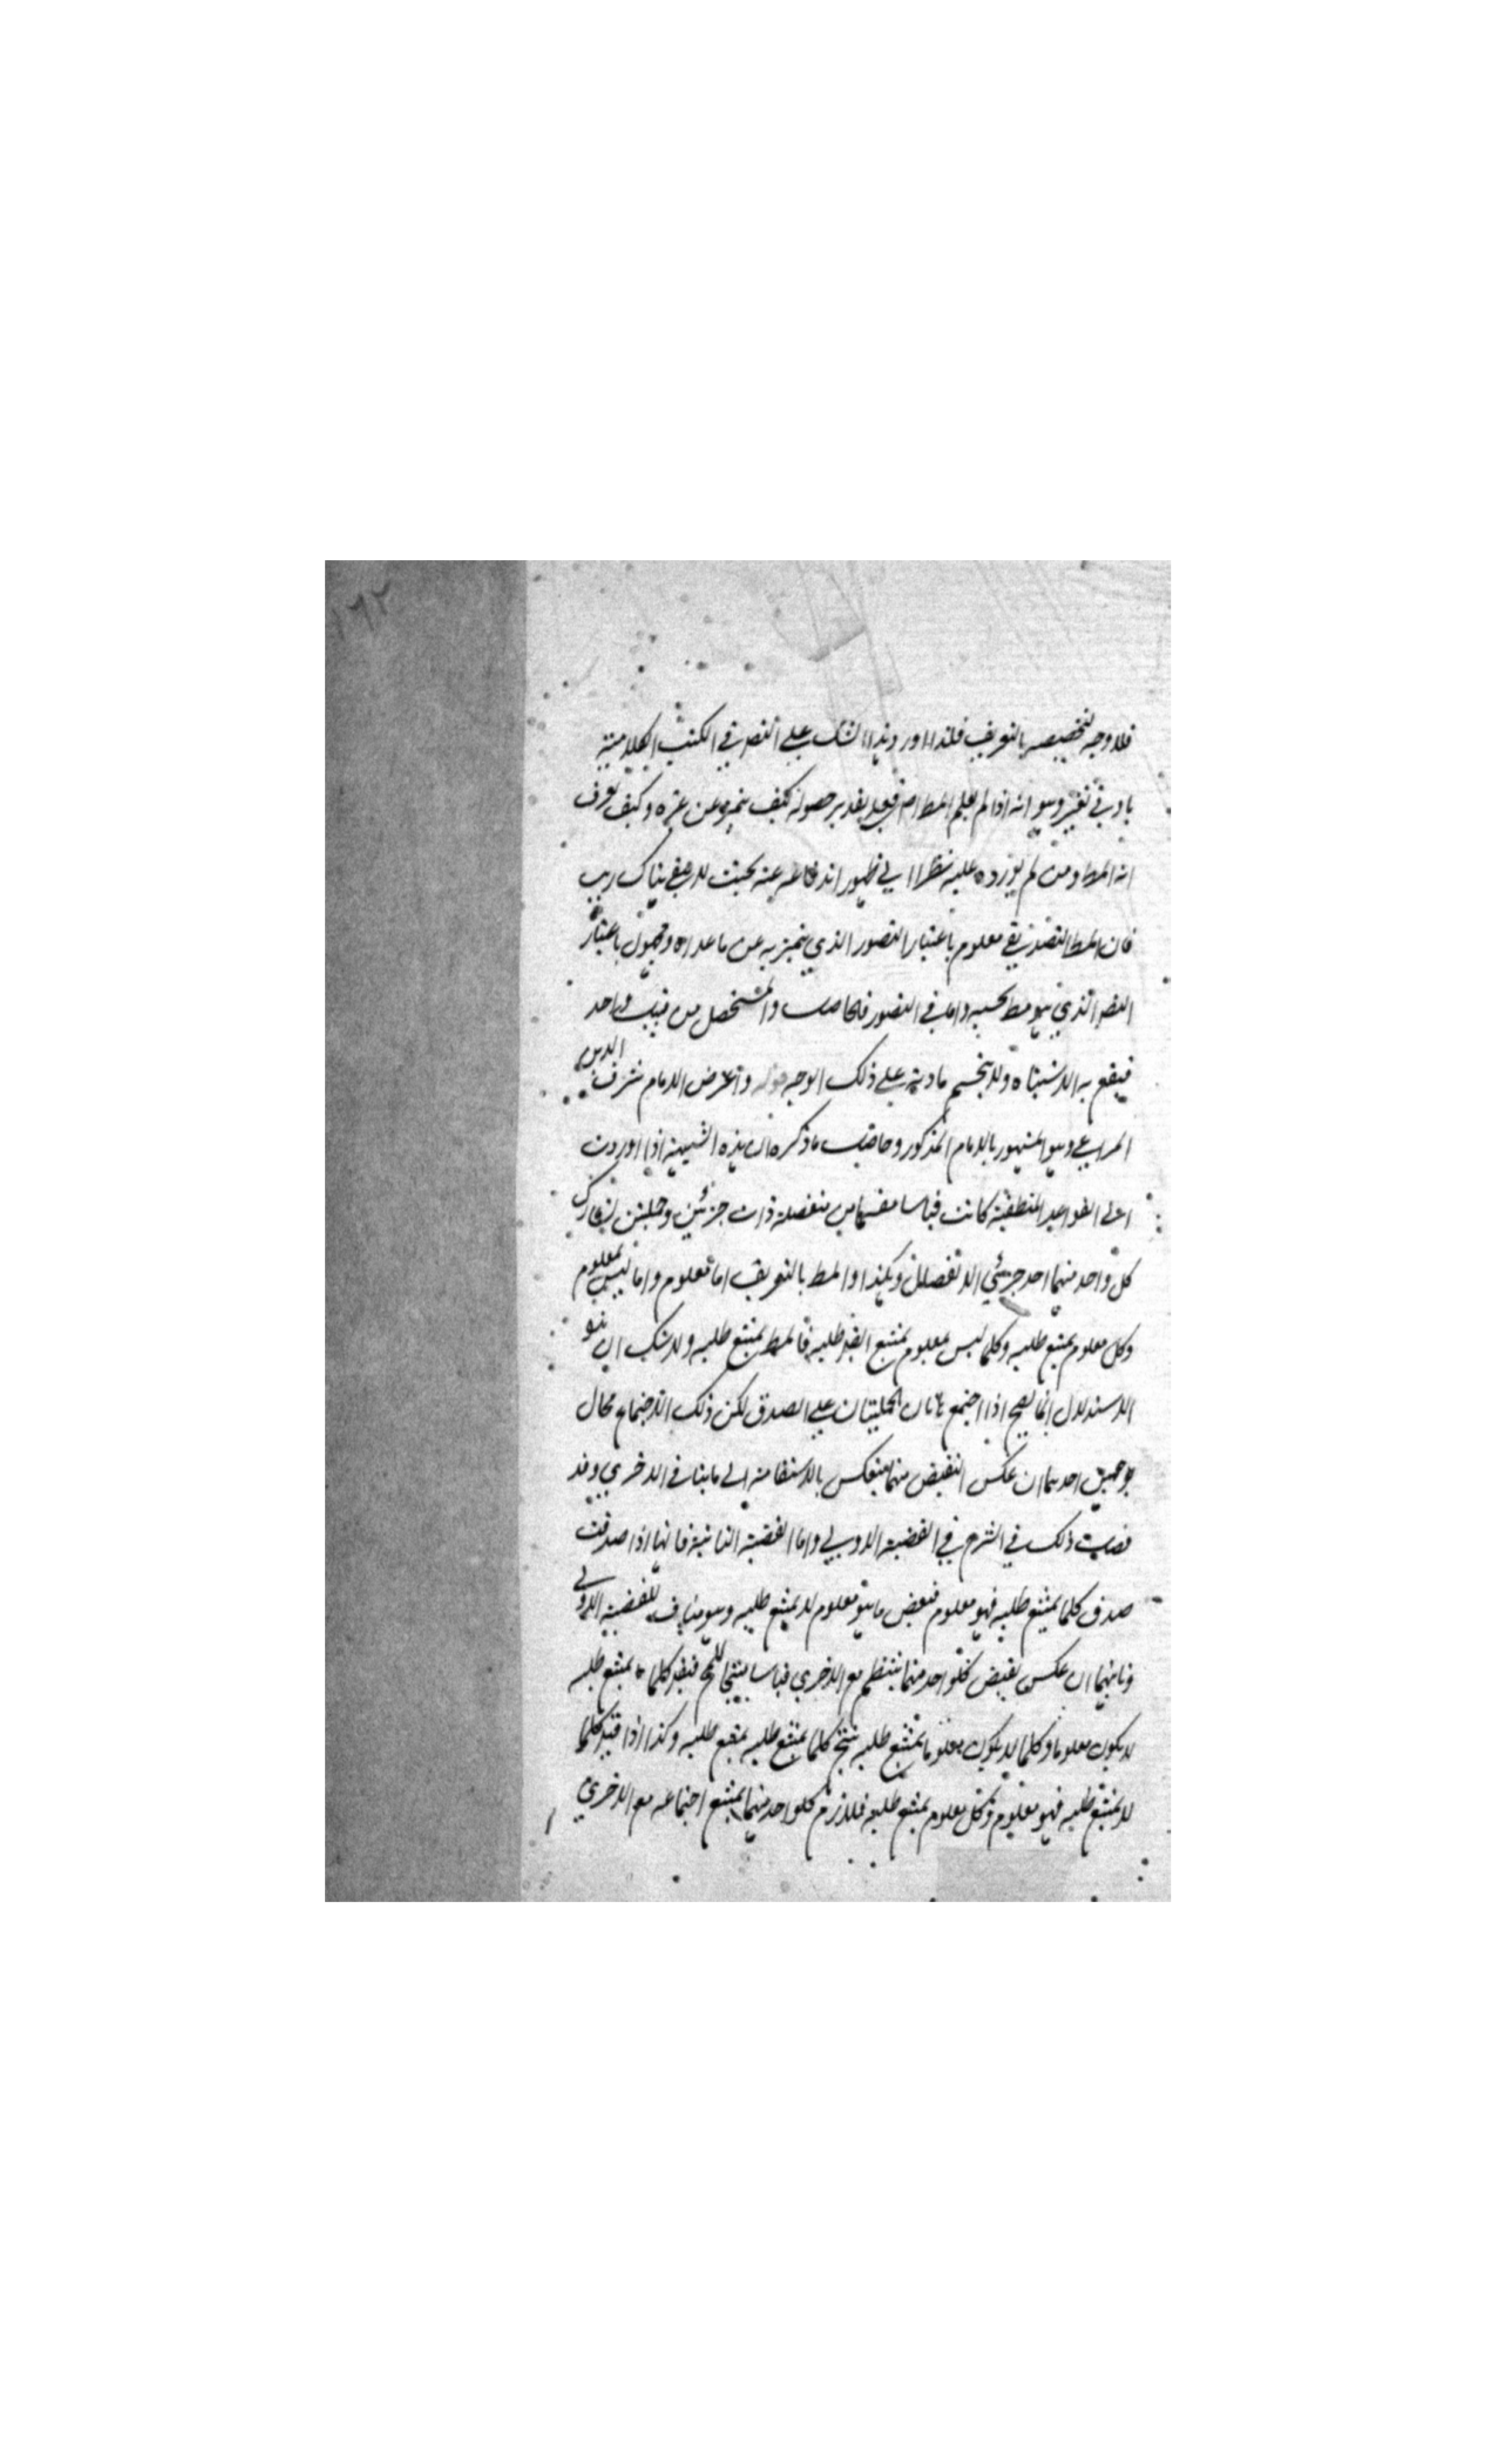 ١٦٢
فلا وجه لتخصيصه بالتعريف قلنا اورد هذا الشك على التصر في الكتب الكلامية
بادنى تغير وهو انه اذا لم يعلم المط ام فعلى تقدير حصوله كيف يتميز عن غيره وكيف يعرف
انه المط ومن لم يورده عليه نظرا الى ظهور اندفاعه عنه بحيث لا يبقى هناك ريب
فان المط التصديقي معلوم باعتبار التصور الذي يتميز به عن ما عداه ومجهول باعتبار
التصر الذي هو مط بحسبه واما في التصور فالحاصل والمستحصل من قبيل واحد
فيقع به الاشتباه ولا ينحسم مادته على ذلك الوجه قوله واعترض الامام شرف الدين
المراغي وهو المشهور بالامام المذكور وحاصل ما ذكره ان هذه الشبهة اذا اوردت
على القواعد المنطقية كانت قياسا مقسما من منفصلة ذات جزئين وحمليتين يشارك
كل واحد منهما احد جزئي الانفصال وهكذا المط بالتعريف اما معلوم واما ليس بمعلوم
وكل معلوم يمتنع طلبه وكلما ليس بمعلوم يمتنع ايضا طلبه فالمط يمتنع طلبه ولا شك ان هذا
الاستدلال انما يصح اذا اجتمع هاتان الحمليتان على الصدق لكن ذلك الاجتماع محال
بوجهين احدهما ان عكس النقيض منهما ينعكس بالاستقامة الى ما ينافي الاخرى وقد
فصل ذلك في الشرح في القضية الاولى واما القضية الثانية فانها اذا صدقت
صدق كلما يمتنع طلبه فهو معلوم فبعض ما هو معلوم لا يمتنع طلبه وهو مناف للقضية الاولى
وثانيهما ان عكس نقيض كلواحد منهما ينتظم مع الاخرى قياسا ينتج المح فيقر كلما لا يمتنع طلبه
لا يكون معلوما وكلما لا يكون معلوما يمتنع طلبه ينتج كلما لا يمتنع طلبه يمتنع طلبه وكذا اذا قيل كلما
لا يمتنع طلبه فهو معلوم وكل معلوم يمتنع طلبه فلازم كلواحد منهما يمتنع اجتماعه مع الاخرى